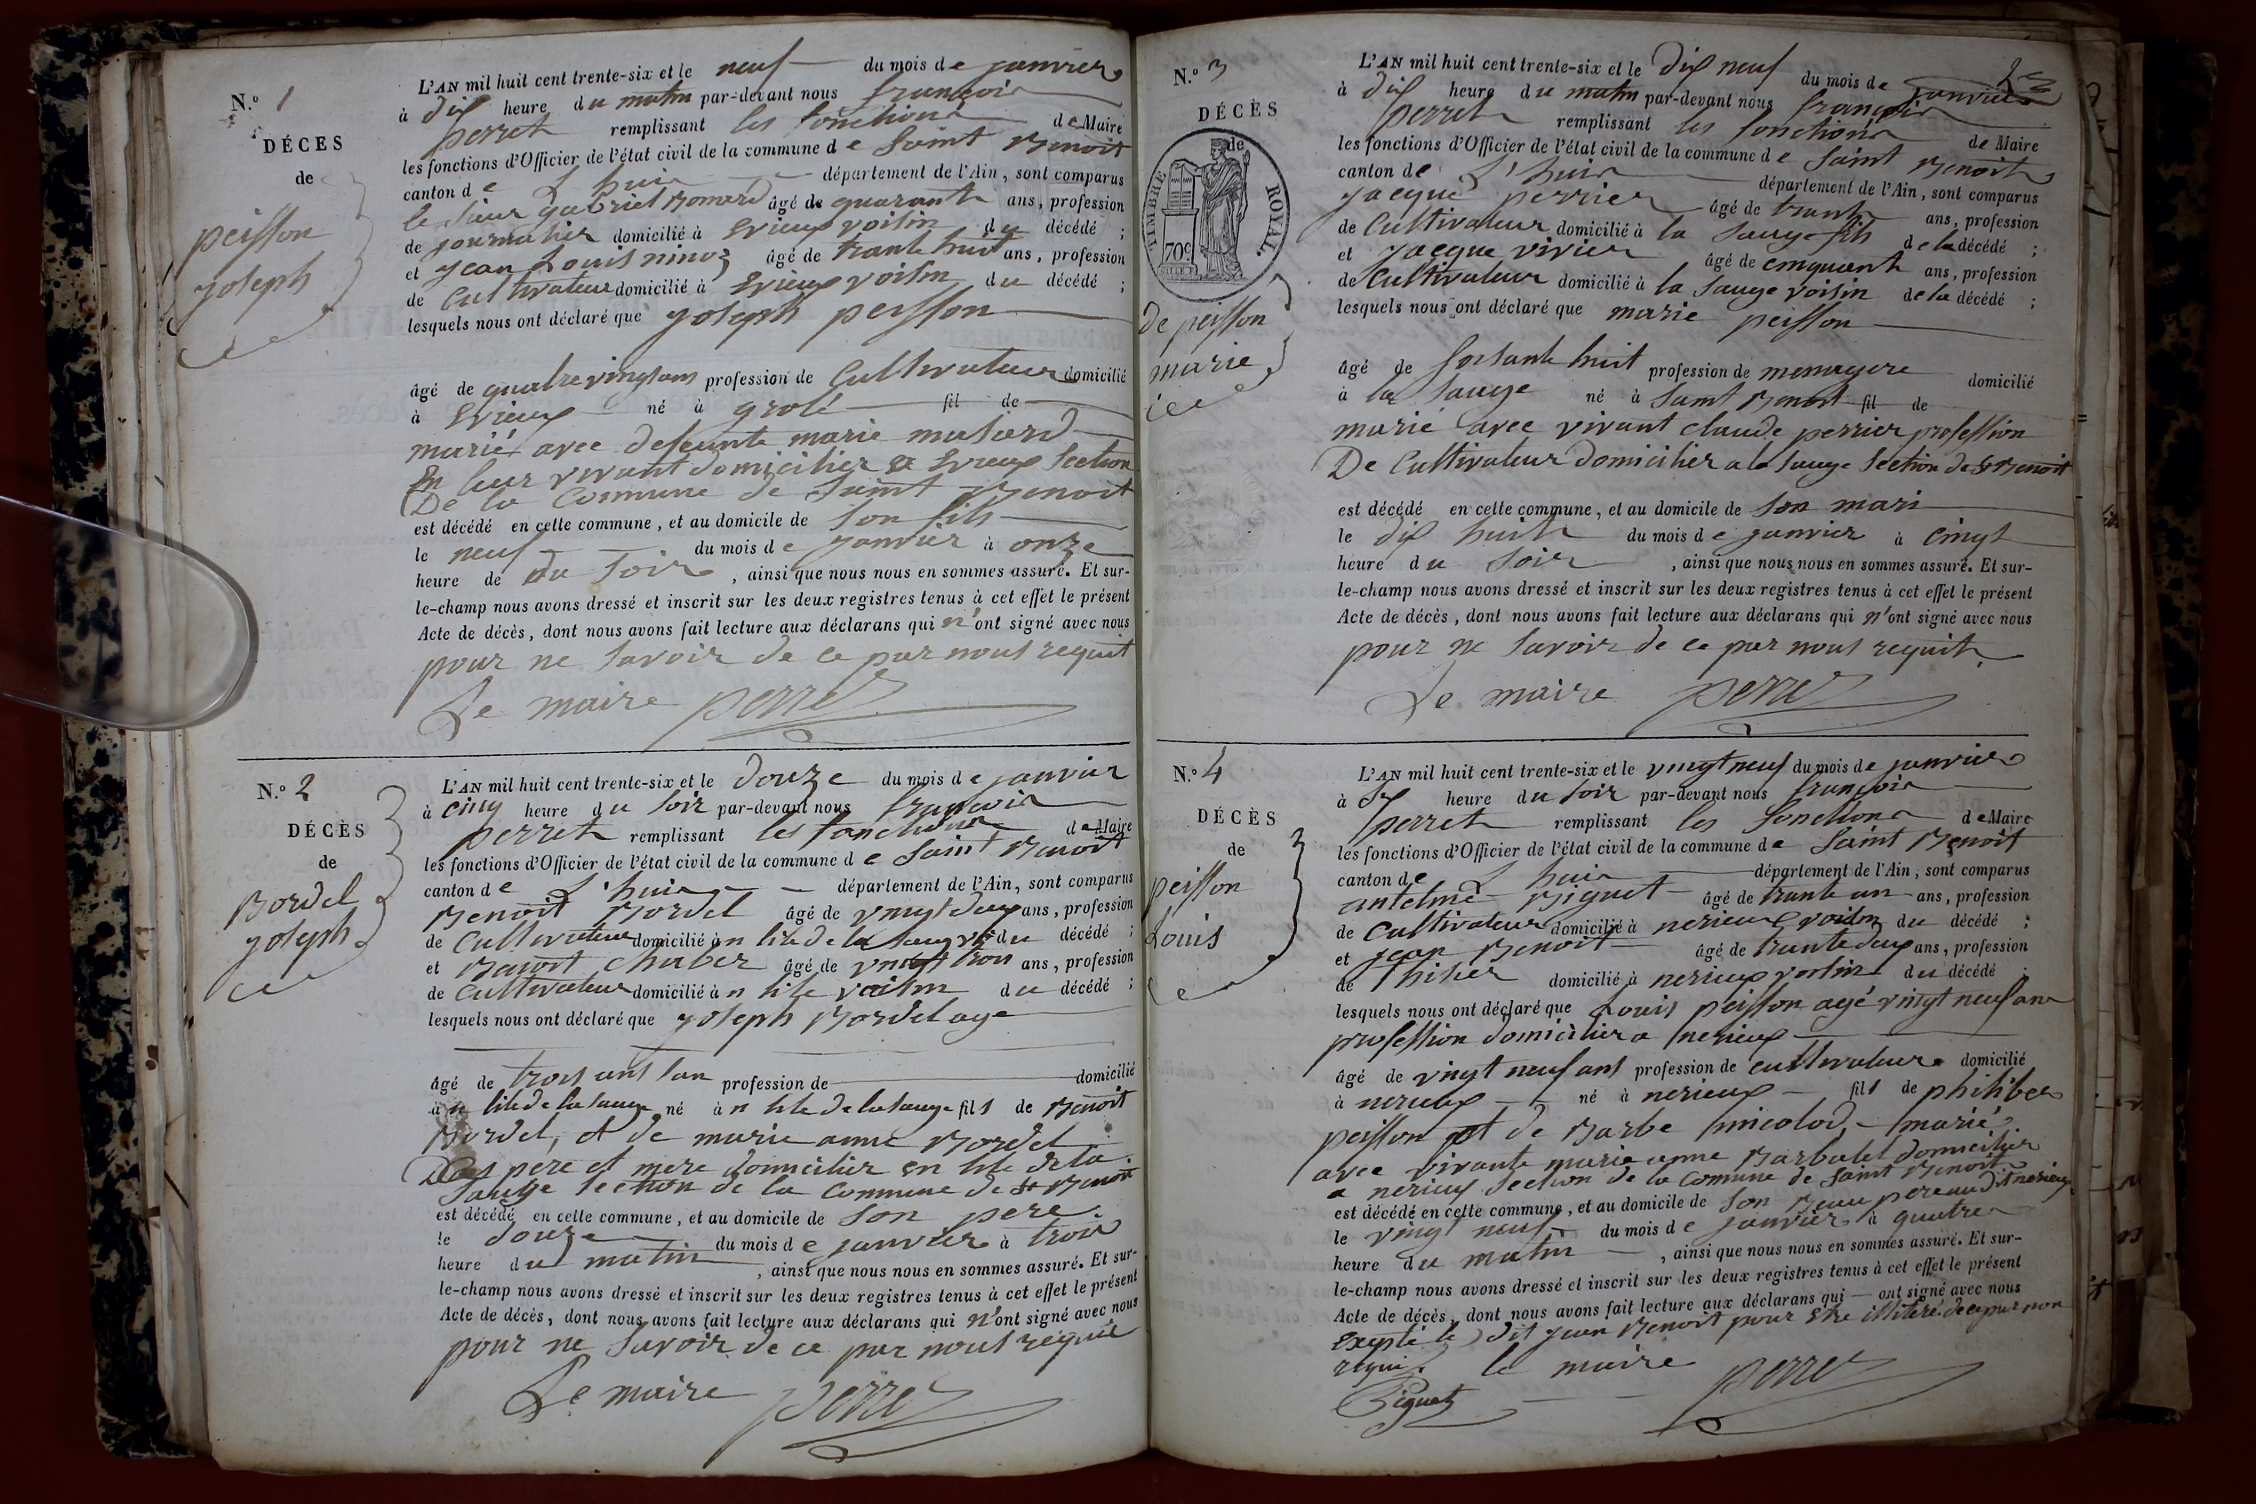 N.º 1
DÉCES
de
peisson
joseph
L'AN mil huit cent trente-six et le neuf du mois de janvier
à dix heure du matin par-devant nous françois
perret remplissant les fonctions de Maire
les fonctions d'Officier de l'état civil de la commune de Saint Benoit
canton de L'huis département de l'Ain, sont comparus
le sieur gabriel Bonard âgé de quarante ans, profession
de journalier domicilié à Evieux voisin du décédé ;
et jean Louis ninoz âgé de trante huit ans, profession
de Cultivateur domicilié à Evieux voisin du décédé ;
lesquels nous ont déclaré que joseph peisson
âgé de quatre vingt ans profession de Cultivateur domicilié
à Evieux né à grolé fil de
marié avec defeunte marie
En leur vivant domicilier a Evieux Section
De la Commune de Saint Benoit
est décédé en cette commune, et au domicile de son fils
le neuf du mois de janvier à onze
heure de du soir, ainsi que nous nous en sommes assuré. Et sur-
le-champ nous avons dressé et inscrit sur les deux registres tenus à cet effet le présent
Acte de décès, dont nous avons fait lecture aux déclarans qui n'ont signé avec nous
pour ne savoir de ce par nous requit
Le maire perret
N.º 2
DÉCÈS
de
Bordel
joseph
L'AN mil huit cent trente-six et le douze du mois de janvier
à cinq heure du soir par-devant nous françois
perret remplissant les fonctions de Maire
les fonctions d'Officier de l'état civil de la commune de Saint Benoit
canton de L'huis département de l'Ain, sont comparus
Benoit Bordel âgé de vingt deux ans, profession
de Cultivateur domicilié à n lile de la sauge du décédé ;
et Benoit chaber âgé de vingt trois ans, profession
de Cultivateur domicilié à n lile voisin du décédé ;
lesquels nous ont déclaré que joseph Bordel age
âgé de trois ans profession de domicilié
à n lile de la sauge né à n lile de la sauge fils de Benoit
Bordel, et de marie anne Bordel
Des pere et mere domicilier en lile de la
Sauge Section de la Commune de St Benoit
est décédé en cette commune, et au domicile de son pere
le douze du mois de janvier à trois
heure du matin, ainsi que nous nous en sommes assuré. Et sur-
le-champ nous avons dressé et inscrit sur les deux registres tenus à cet effet le présent
Acte de décès, dont nous avons fait lecture aux déclarans qui n'ont signé avec nous
pour ne savoir de ce par nous requit
Le maire perret
2
N.º 3
DÉCÈS
de
TIMBRE ROYAL.
70c
de peisson
marie
L'AN mil huit cent trente-six et le dix neuf du mois de janvier
à dix heure du matin par-devant nous françois
perret remplissant les fonctions de Maire
les fonctions d'Officier de l'état civil de la commune de Saint Benoit
canton de L'huis département de l'Ain, sont comparus
jacque perrier âgé de trante ans, profession
de Cultivateur domicilié à la sauge fils de la décédé ;
et jacque vivier âgé de cinquante ans, profession
de Cultivateur domicilié à la sauge voisin de la décédé ;
lesquels nous ont déclaré que marie peisson
âgé de soisante huit profession de menagere domicilié
à la sauge né à Saint Benoit fil de
marié avec vivant claude perrier profession
De Cultivateur domicilier a la sauge Section de St Benoit
est décédé en cette commune, et au domicile de son mari
le dix huit du mois de janvier à cinqt
heure du soir, ainsi que nous nous en sommes assuré. Et sur-
le-champ nous avons dressé et inscrit sur les deux registres tenus à cet effet le présent
Acte de décès, dont nous avons fait lecture aux déclarans qui n'ont signé avec nous
pour ne savoir de ce par nous requit
Le maire perret
N.º 4
DÉCÈS
de
peisson
Louis
L'AN mil huit cent trente-six et le vingt neuf du mois de janvier
à six heure du soir par-devant nous françois
perret remplissant les fonctions de Maire
les fonctions d'Officier de l'état civil de la commune de Saint Benoit
canton de L'huis département de l'Ain, sont comparus
antelme Piguet âgé de trante un ans, profession
de Cultivateur domicilié à nerieux voisin du décédé ;
et jean Benoit âgé de trante deux ans, profession
de domicilié à nerieux voisin du décédé
lesquels nous ont déclaré que Louis peisson agé vingt neuf ans
profession domicilier a nerieux
âgé de vingt neuf ans profession de cultivateur domicilié
à nerieux né à nerieux fils de philiber
peisson et de Barbe micolod marié
avec vivante marie anne Barbalet domicilier
a nerieux Section de la Comune de Saint Benoit
est décédé en cette commune, et au domicile de son Beau pere au dit nerieux
le vingt neuf du mois de janvier à quatre
heure du matin, ainsi que nous nous en sommes assuré. Et sur-
le-champ nous avons dressé et inscrit sur les deux registres tenus à cet effet le présent
Acte de décès, dont nous avons fait lecture aux déclarans qui — ont signé avec nous
exepté le dit jean Benoit pour etre illitéré de ce par nou
requi le maire perret
Piguet